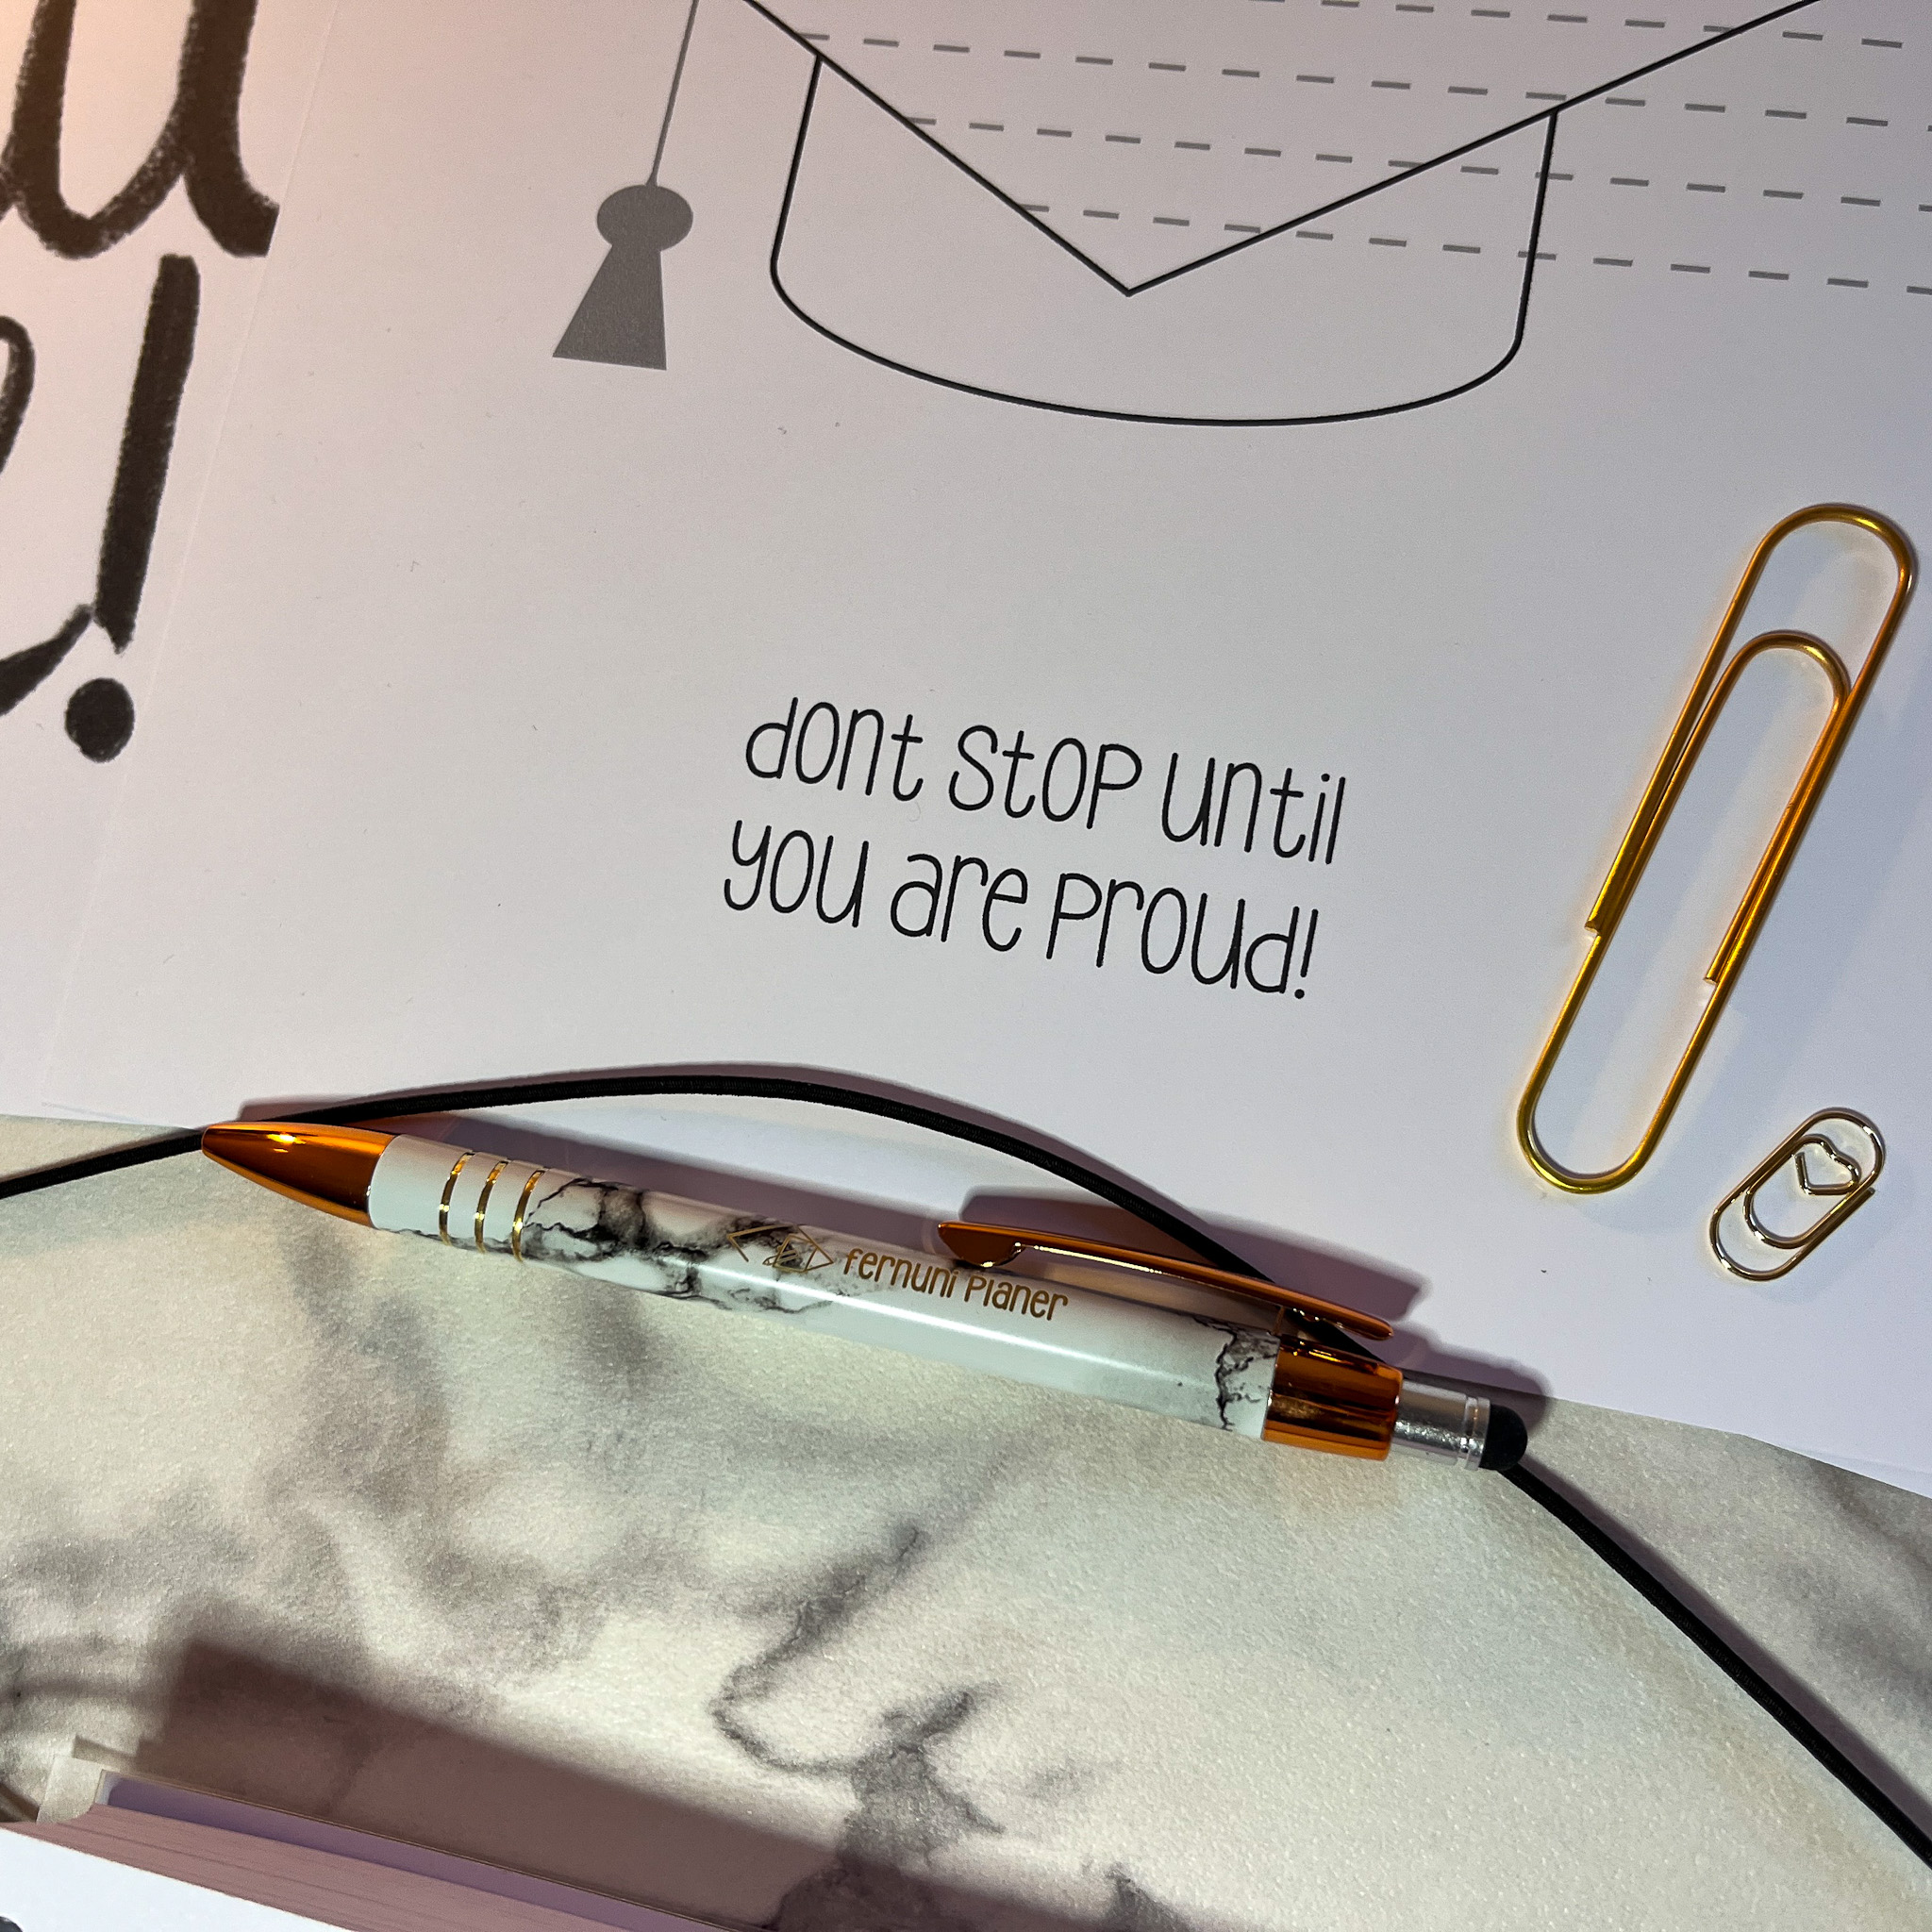 dont stop until
you are proud!
fernuni planer